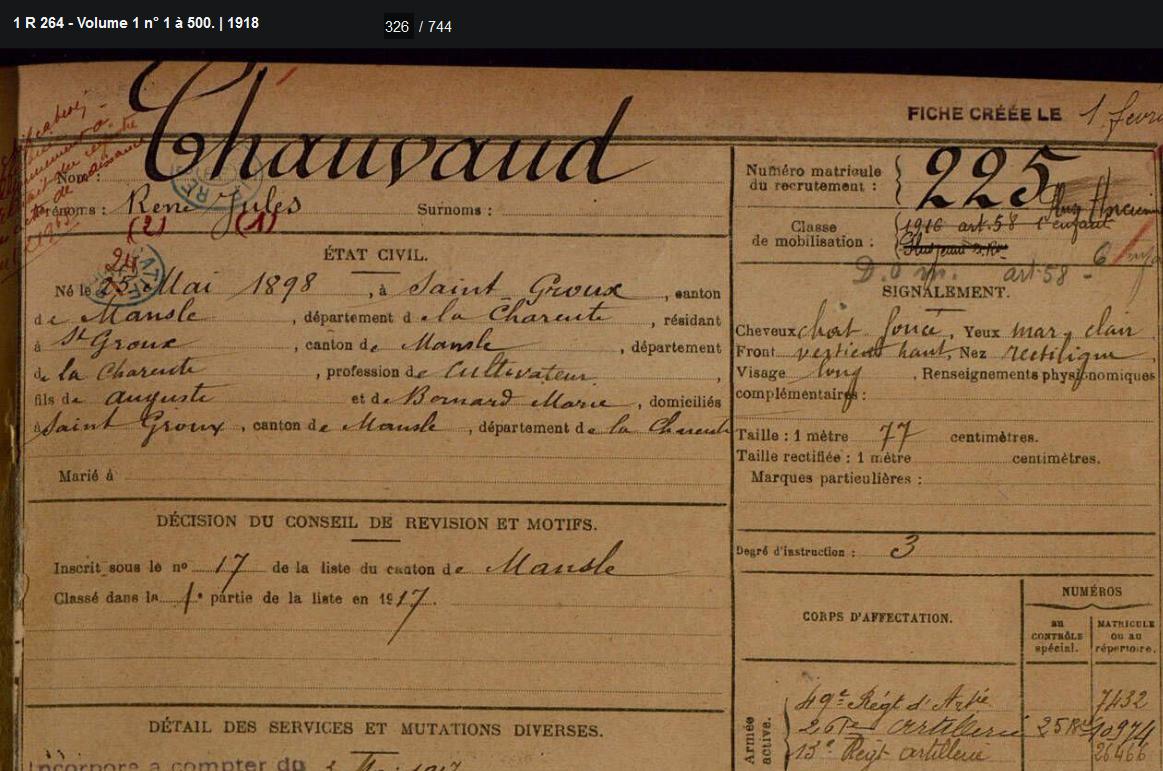 1 R 264 - Volume 1 n° 1 à 500. | 1918
326 / 744
Chauvaud
FICHE CRÉÉE LE 1 fevri
Nom :
Prénoms : René Jules Surnoms :
(2) (1)
Numéro matricule du recrutement : 225
Classe de mobilisation : 1910 art. 58 1 enfant
D. o m. art 58 -
ÉTAT CIVIL.
24
Né le 25 Mai 1898, à Saint Groux, canton
de Mansle, département de la Charente, résidant
à St Groux, canton de Mansle, département
de la Charente, profession de Cultivateur,
fils de auguste et de Bornard Marie, domiciliés
à Saint Groux, canton de Mansle, département de la Charente
Marié à
SIGNALEMENT.
Cheveux chat foncé, Yeux mar. clair
Front vertical haut, Nez rectiligne,
Visage long, Renseignements physionomiques
complémentaires :
Taille : 1 mètre 77 centimètres.
Taille rectifiée : 1 mètre centimètres.
Marques particulières :
Degré d'instruction : 3
DÉCISION DU CONSEIL DE REVISION ET MOTIFS.
Inscrit sous le no 17 de la liste du canton de Mansle
Classé dans la 1e partie de la liste en 1917.
DÉTAIL DES SERVICES ET MUTATIONS DIVERSES.
Incorporé à compter du 2 Mai 1917
CORPS D'AFFECTATION.
NUMÉROS
au CONTRÔLE spécial.
MATRICULE ou au répertoire.
Armée active.
49e Régt d'Artie 7432
26Te artillerie 25 Re 10974
13e Regt artillerie 26466